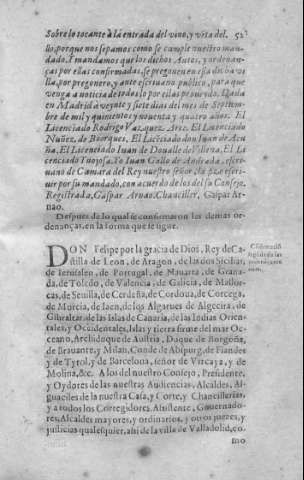 Sobre lo tocante à la entrada del vino, y vẽta del. 52
llo, porque nos sepamos como se cumple nuestro man-
dado. I mandamos que los dichos Autos, y ordenan-
ças por ellas confirmadas, se pregonen en essa dicha vi
lla, por pregonero, y ante escriuano publico, para que
venga a noticia de todos lo por ellas proueydo. Dada
en Madrid à veynte y siete dias del mes de Septiem-
bre de mil y quinientos y nouenta y quatro años. El
Licenciado Rodrigo Vazquez, Arze. El Licenciado
Nuñez, de Boorques. El Licẽciado don Iuan de Acu
ña, El Licenciado Iuan de Ouualle de Villena, El Li
cenciado Tuojosa. Yo Iuan Gallo de Andrada, escri-
uano de Camara del Rey nuestro señor, la fize escri-
uir por su mandado, con acuerdo de los del su Consejo,
Registrada, Gaspar Arnao. Chanciller, Gaspar Ar-
nao.
Despues de lo qual se confirmaron las demas or-
denanças, en la forma que se sigue.
DON Felipe por la gracia de Dios, Rey de Ca-
stilla de Leon, de Aragon, de las dos Sicilias,
de Ierusalen, de Portugal, de Nauarra, de Grana-
da, de Toledo, de Valencia, de Galicia, de Mallor-
cas, de Seuilla, de Cerdeña, de Cordoua, de Corcega,
de Murcia, de Iaen, de los Algarues de Algecira, de
Gibraltar, de las Islas de Canaria, de las Indias Orien-
tales, y Occidentales, Islas y tierra firme del mar Oc-
ceano, Archiduque de Austria, Duque de Borgoña,
de Brauante, y Milan, Conde de Abspurg, de Flandes
y de Tyrol, y de Barcelona, señor de Vizcaya, y de
Molina, &c. A los del nuestro Consejo, Presidente,
y Oydores de las nuestras Audiencias, Alcaldes, Al-
guaciles de la nuestra Casa, y Corte, y Chancillerias,
y a todos los Corregidores, Assistente, Gouernado-
res, Alcaldes mayores, y ordinarios, y otros juezes, y
justicias qualesquier, assi de la villa de Valladolid, co-
mo